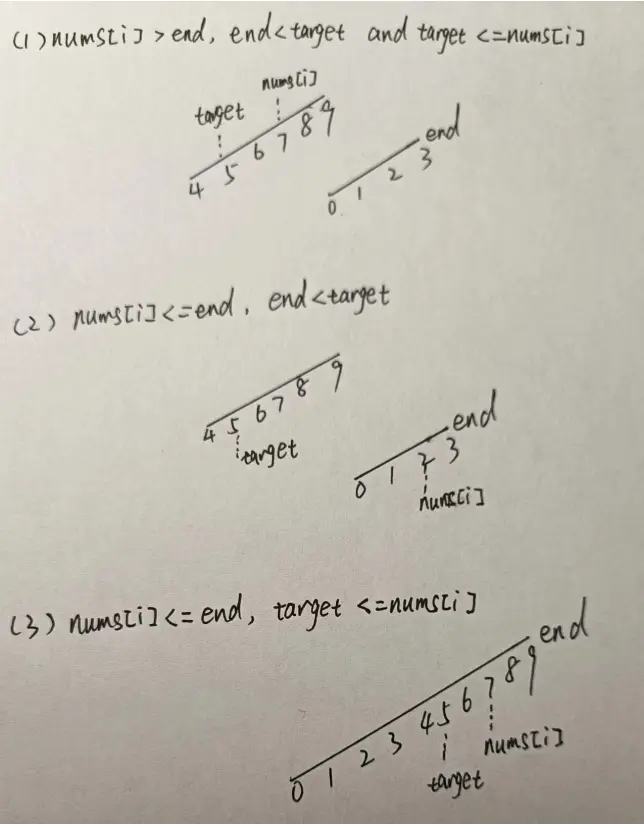 (1) nums[i] > end, end < target and target <= nums[i]
target nums[i]
4 5 6 7 8 9
end
0 1 2 3
(2) nums[i] <= end, end < target
4 5 6 7 8 9
target
end
0 1 2 3
nums[i]
(3) nums[i] <= end, target <= nums[i]
end
0 1 2 3 4 5 6 7 8 9
target nums[i]